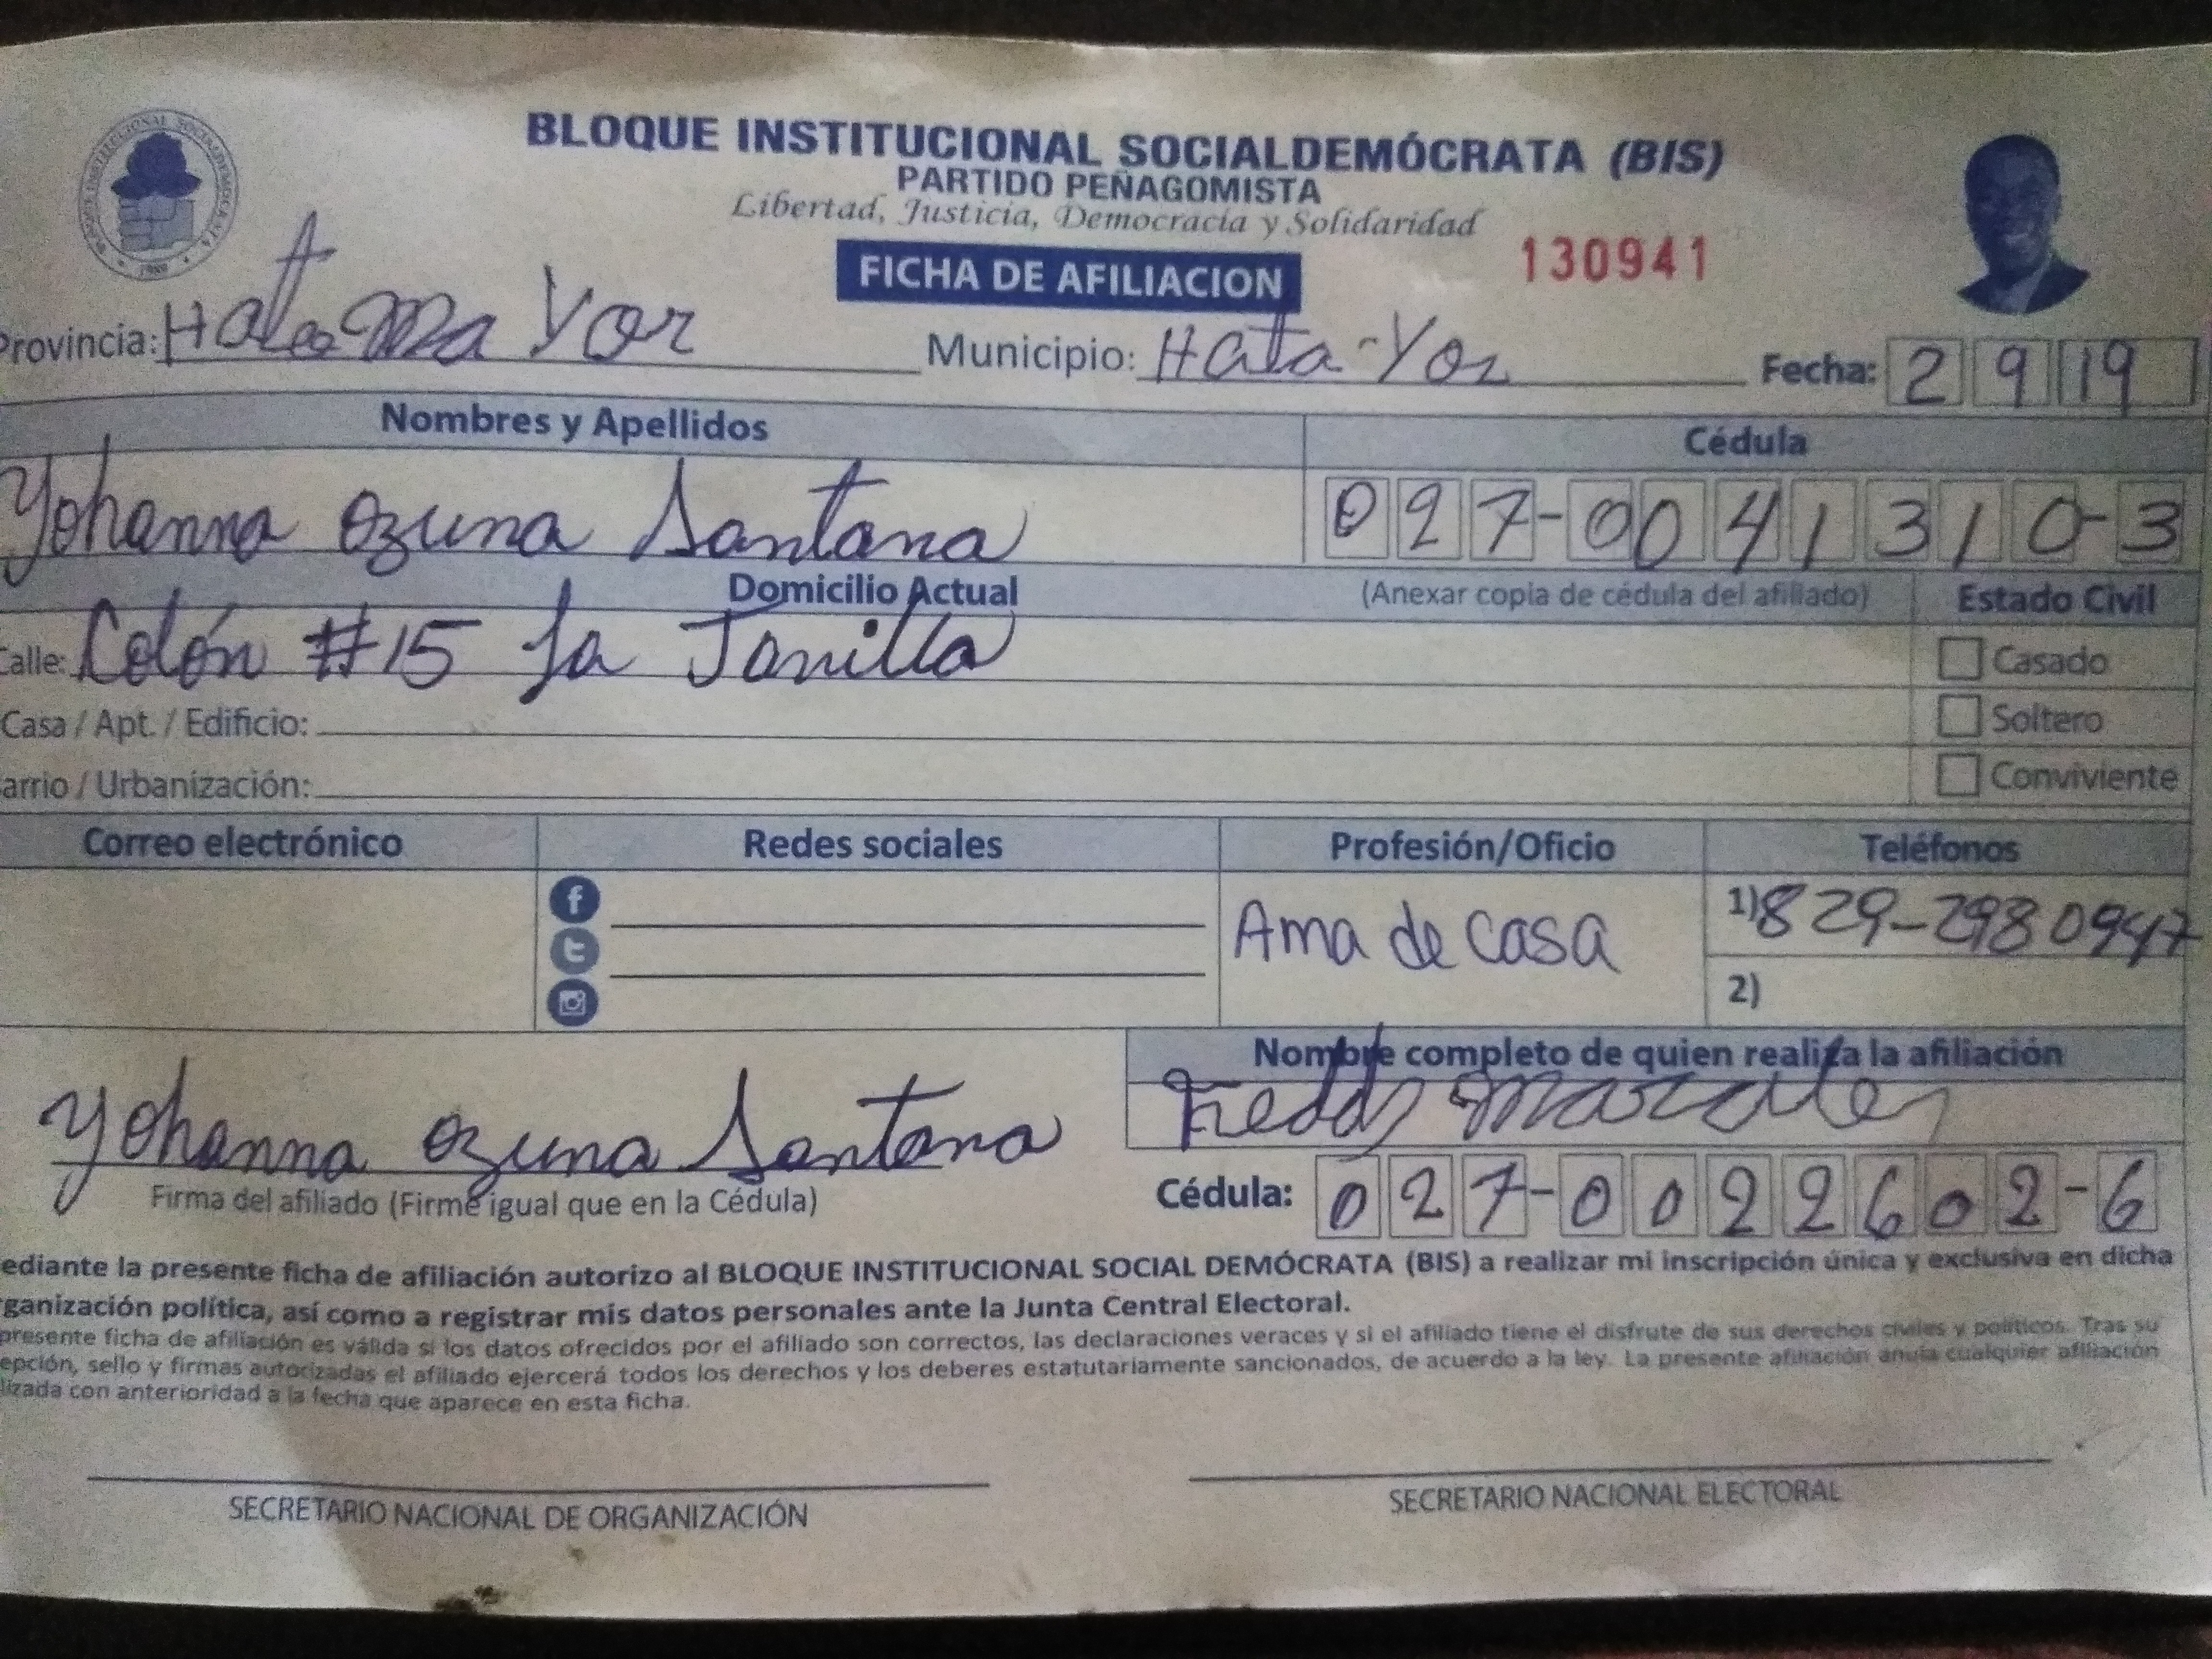 BLOQUE INSTITUCIONAL SOCIALDEMÓCRATA (BIS)
PARTIDO PEÑAGOMISTA
Libertad, Justicia, Democracia y Solidaridad
FICHA DE AFILIACION
130941
Provincia: Hato Ma Yor Municipio: Hata-Yor Fecha: 2 9 19
Nombres y Apellidos Cédula
Yohanna Ozuna Santana 027-0041310-3
Domicilio Actual (Anexar copia de cédula del afiliado) Estado Civil
Calle: Colón #15 La Janilla Casado
Casa / Apt. / Edificio: Soltero
arrio / Urbanización: Conviviente
Correo electrónico Redes sociales Profesión/Oficio Teléfonos
Ama de casa 1) 829-298 0947
2)
Nombre completo de quien realiza la afiliación
Yohanna Ozuna Santana Freddy Morales
Firma del afiliado (Firme igual que en la Cédula) Cédula: 027-0022602-6
ediante la presente ficha de afiliación autorizo al BLOQUE INSTITUCIONAL SOCIAL DEMÓCRATA (BIS) a realizar mi inscripción única y exclusiva en dicha
ganización política, así como a registrar mis datos personales ante la Junta Central Electoral.
presente ficha de afiliación es válida si los datos ofrecidos por el afiliado son correctos, las declaraciones veraces y si el afiliado tiene el disfrute de sus derechos civiles y políticos. Tras su
epción, sello y firmas autorizadas el afiliado ejercerá todos los derechos y los deberes estatutariamente sancionados, de acuerdo a la ley. La presente afiliación anula cualquier afiliación
lizada con anterioridad a la fecha que aparece en esta ficha.
SECRETARIO NACIONAL DE ORGANIZACIÓN SECRETARIO NACIONAL ELECTORAL